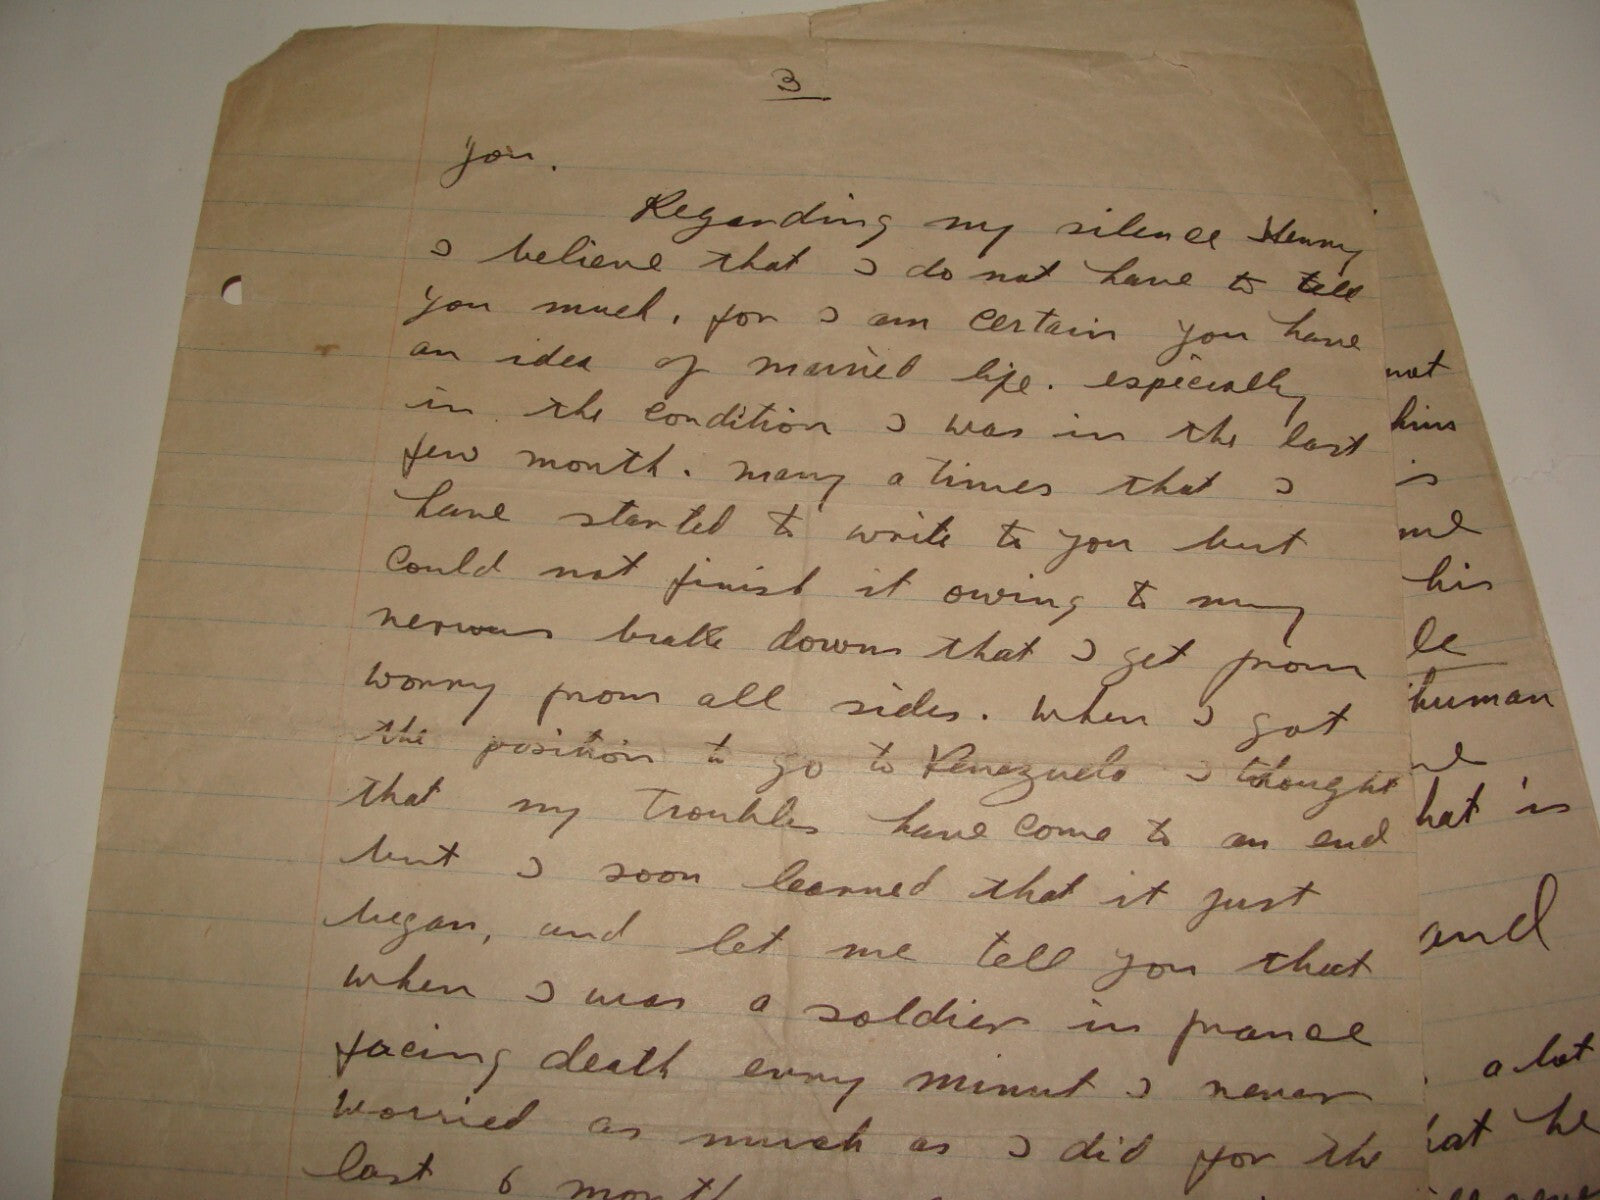 3
you.
Regarding my silence Henry
I believe that I do not have to tell
you much, for I am certain you have
an idea of married life. especially
in the condition I was in the last
few month. many a times that I
have started to write to you but
could not finish it owing to many
nervous brake downs that I get from
worry from all sides. when I got
the position to go to Venezuela I thought
that my troubles have come to an end
but I soon learned that it just
began, and let me tell you that
when I was a soldier in france
facing death evry minut I never
worried as much as I did for the
last 6 month
not
him
is
me
his
le
human
hat is
and
a lot
hat he